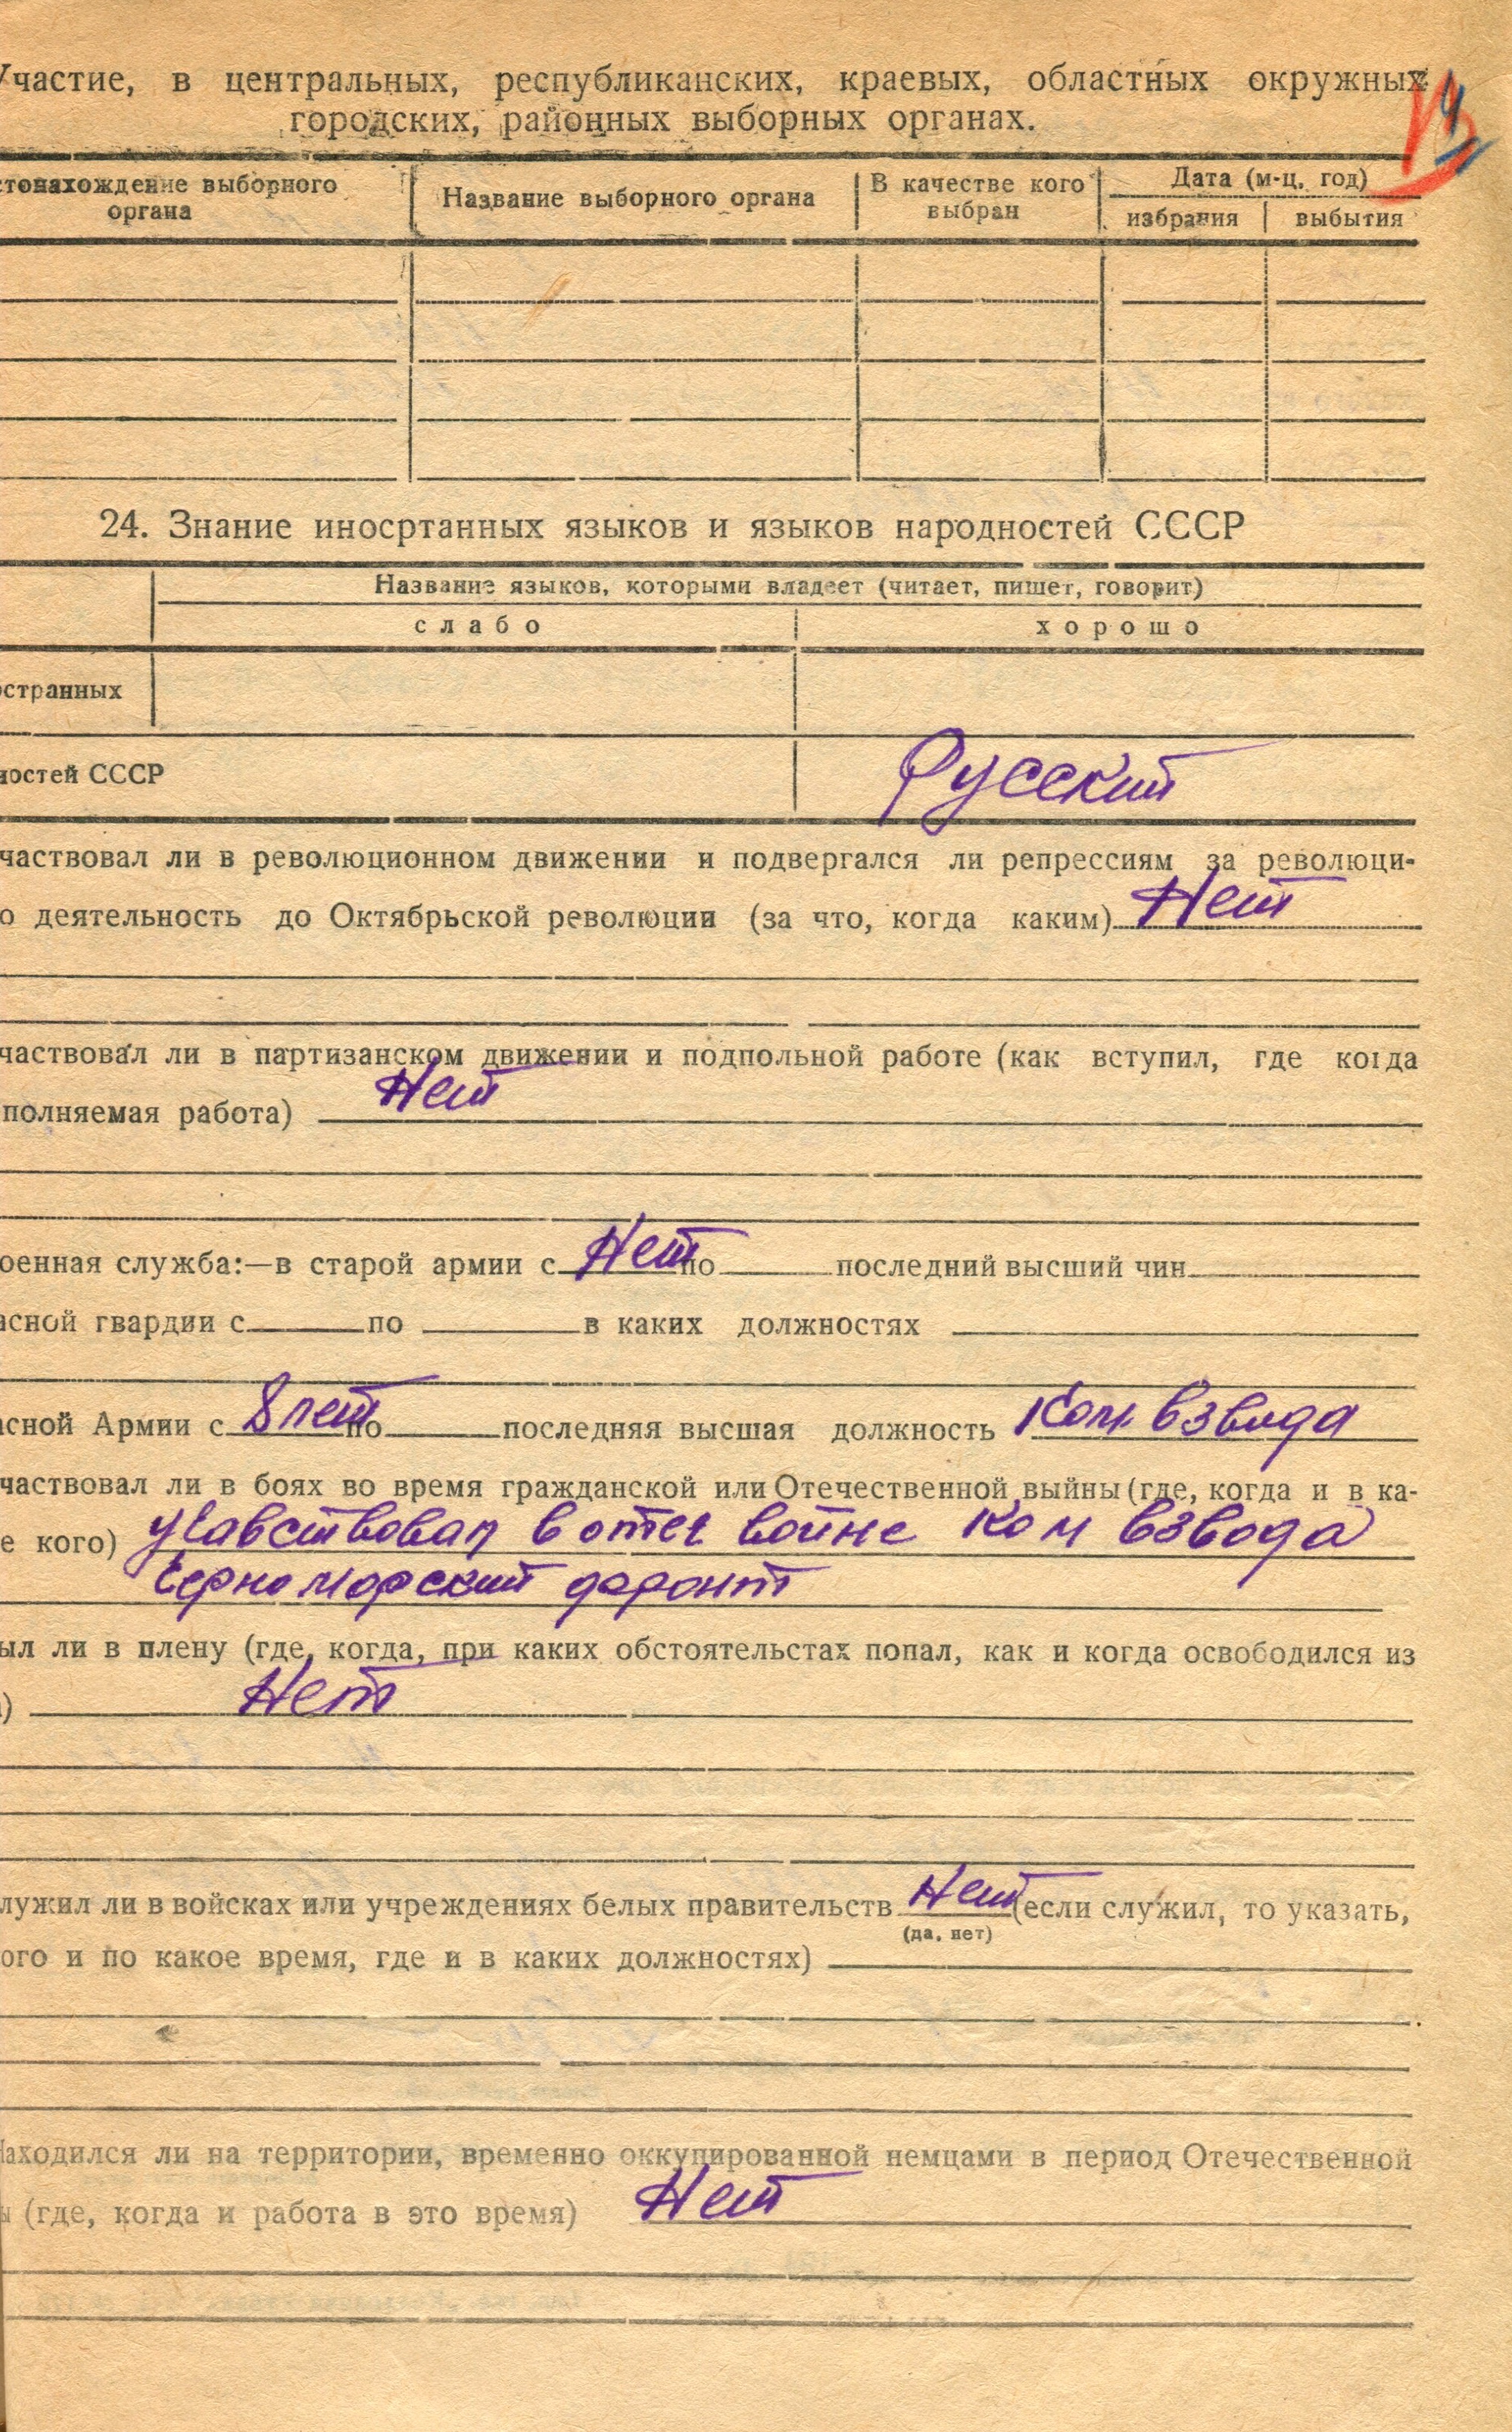 Участие, в центральных, республиканских, краевых, областных окружных
городских, районных выборных органах.
стонахождение выборного органа | Название выборного органа | В качестве кого выбран | Дата (м-ц, год)
избрания | выбытия
24. Знание иносртанных языков и языков народностей СССР
Название языков, которыми владеет (читает, пишет, говорит)
слабо | хорошо
остранных
ностей СССР Русский
частвовал ли в революционном движении и подвергался ли репрессиям за революци-
о деятельность до Октябрьской революции (за что, когда каким) Нет
частвовал ли в партизанском движении и подпольной работе (как вступил, где когда
полняемая работа) Нет
оенная служба:—в старой армии с Нет по последний высший чин
асной гвардии с по в каких должностях
асной Армии с 8 лет по последняя высшая должность Ком. взвода
частвовал ли в боях во время гражданской или Отечественной выйны (где, когда и в ка-
е кого) Учавствовал в отеч войне Ком взвода
Черноморский фронт
ыл ли в плену (где, когда, при каких обстоятельстах попал, как и когда освободился из
) Нет
лужил ли в войсках или учреждениях белых правительств Нет (если служил, то указать,
(да, нет)
ого и по какое время, где и в каких должностях)
Находился ли на территории, временно оккупированной немцами в период Отечественной
ы (где, когда и работа в это время) Нет